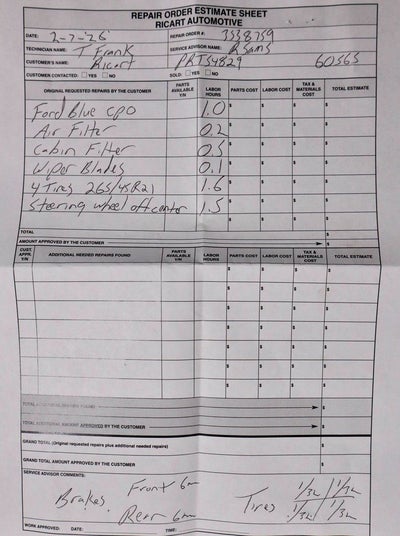 REPAIR ORDER ESTIMATE SHEET
RICART AUTOMOTIVE
DATE: 2-7-'26 REPAIR ORDER #: 3538759
TECHNICIAN NAME: T Frank SERVICE ADVISOR NAME: R Sams
CUSTOMER'S NAME: Ricart PRT54829 60565
CUSTOMER CONTACTED: YES NO SOLD: YES NO
ORIGINAL REQUESTED REPAIRS BY THE CUSTOMER PARTS AVAILABLE Y/N LABOR HOURS PARTS COST LABOR COST TAX & MATERIALS COST TOTAL ESTIMATE
Ford Blue CPO 1.0 $ $ $ $
Air Filter 0.2 $ $ $ $
Cabin Filter 0.5 $ $ $ $
Wiper Blades 0.1 $ $ $ $
4 Tires 265/45R21 1.6 $ $ $ $
Steering wheel off center 1.5 $ $ $ $
TOTAL $
AMOUNT APPROVED BY THE CUSTOMER $
CUST. APPR. Y/N ADDITIONAL NEEDED REPAIRS FOUND PARTS AVAILABLE Y/N LABOR HOURS PARTS COST LABOR COST TAX & MATERIALS COST TOTAL ESTIMATE
$ $ $ $
$ $ $ $
$ $ $ $
$ $ $ $
$ $ $ $
$ $ $ $
$ $ $ $
TOTAL ADDITIONAL REPAIRS FOUND $
TOTAL ADDITIONAL AMOUNT APPROVED BY THE CUSTOMER $
GRAND TOTAL (Original requested repairs plus additional needed repairs) $
GRAND TOTAL AMOUNT APPROVED BY THE CUSTOMER $
SERVICE ADVISOR COMMENTS:
Brakes Front 6mm Tires 1/32 1/32
Rear 6mm 1/32 1/32
WORK APPROVED: DATE: TIME: